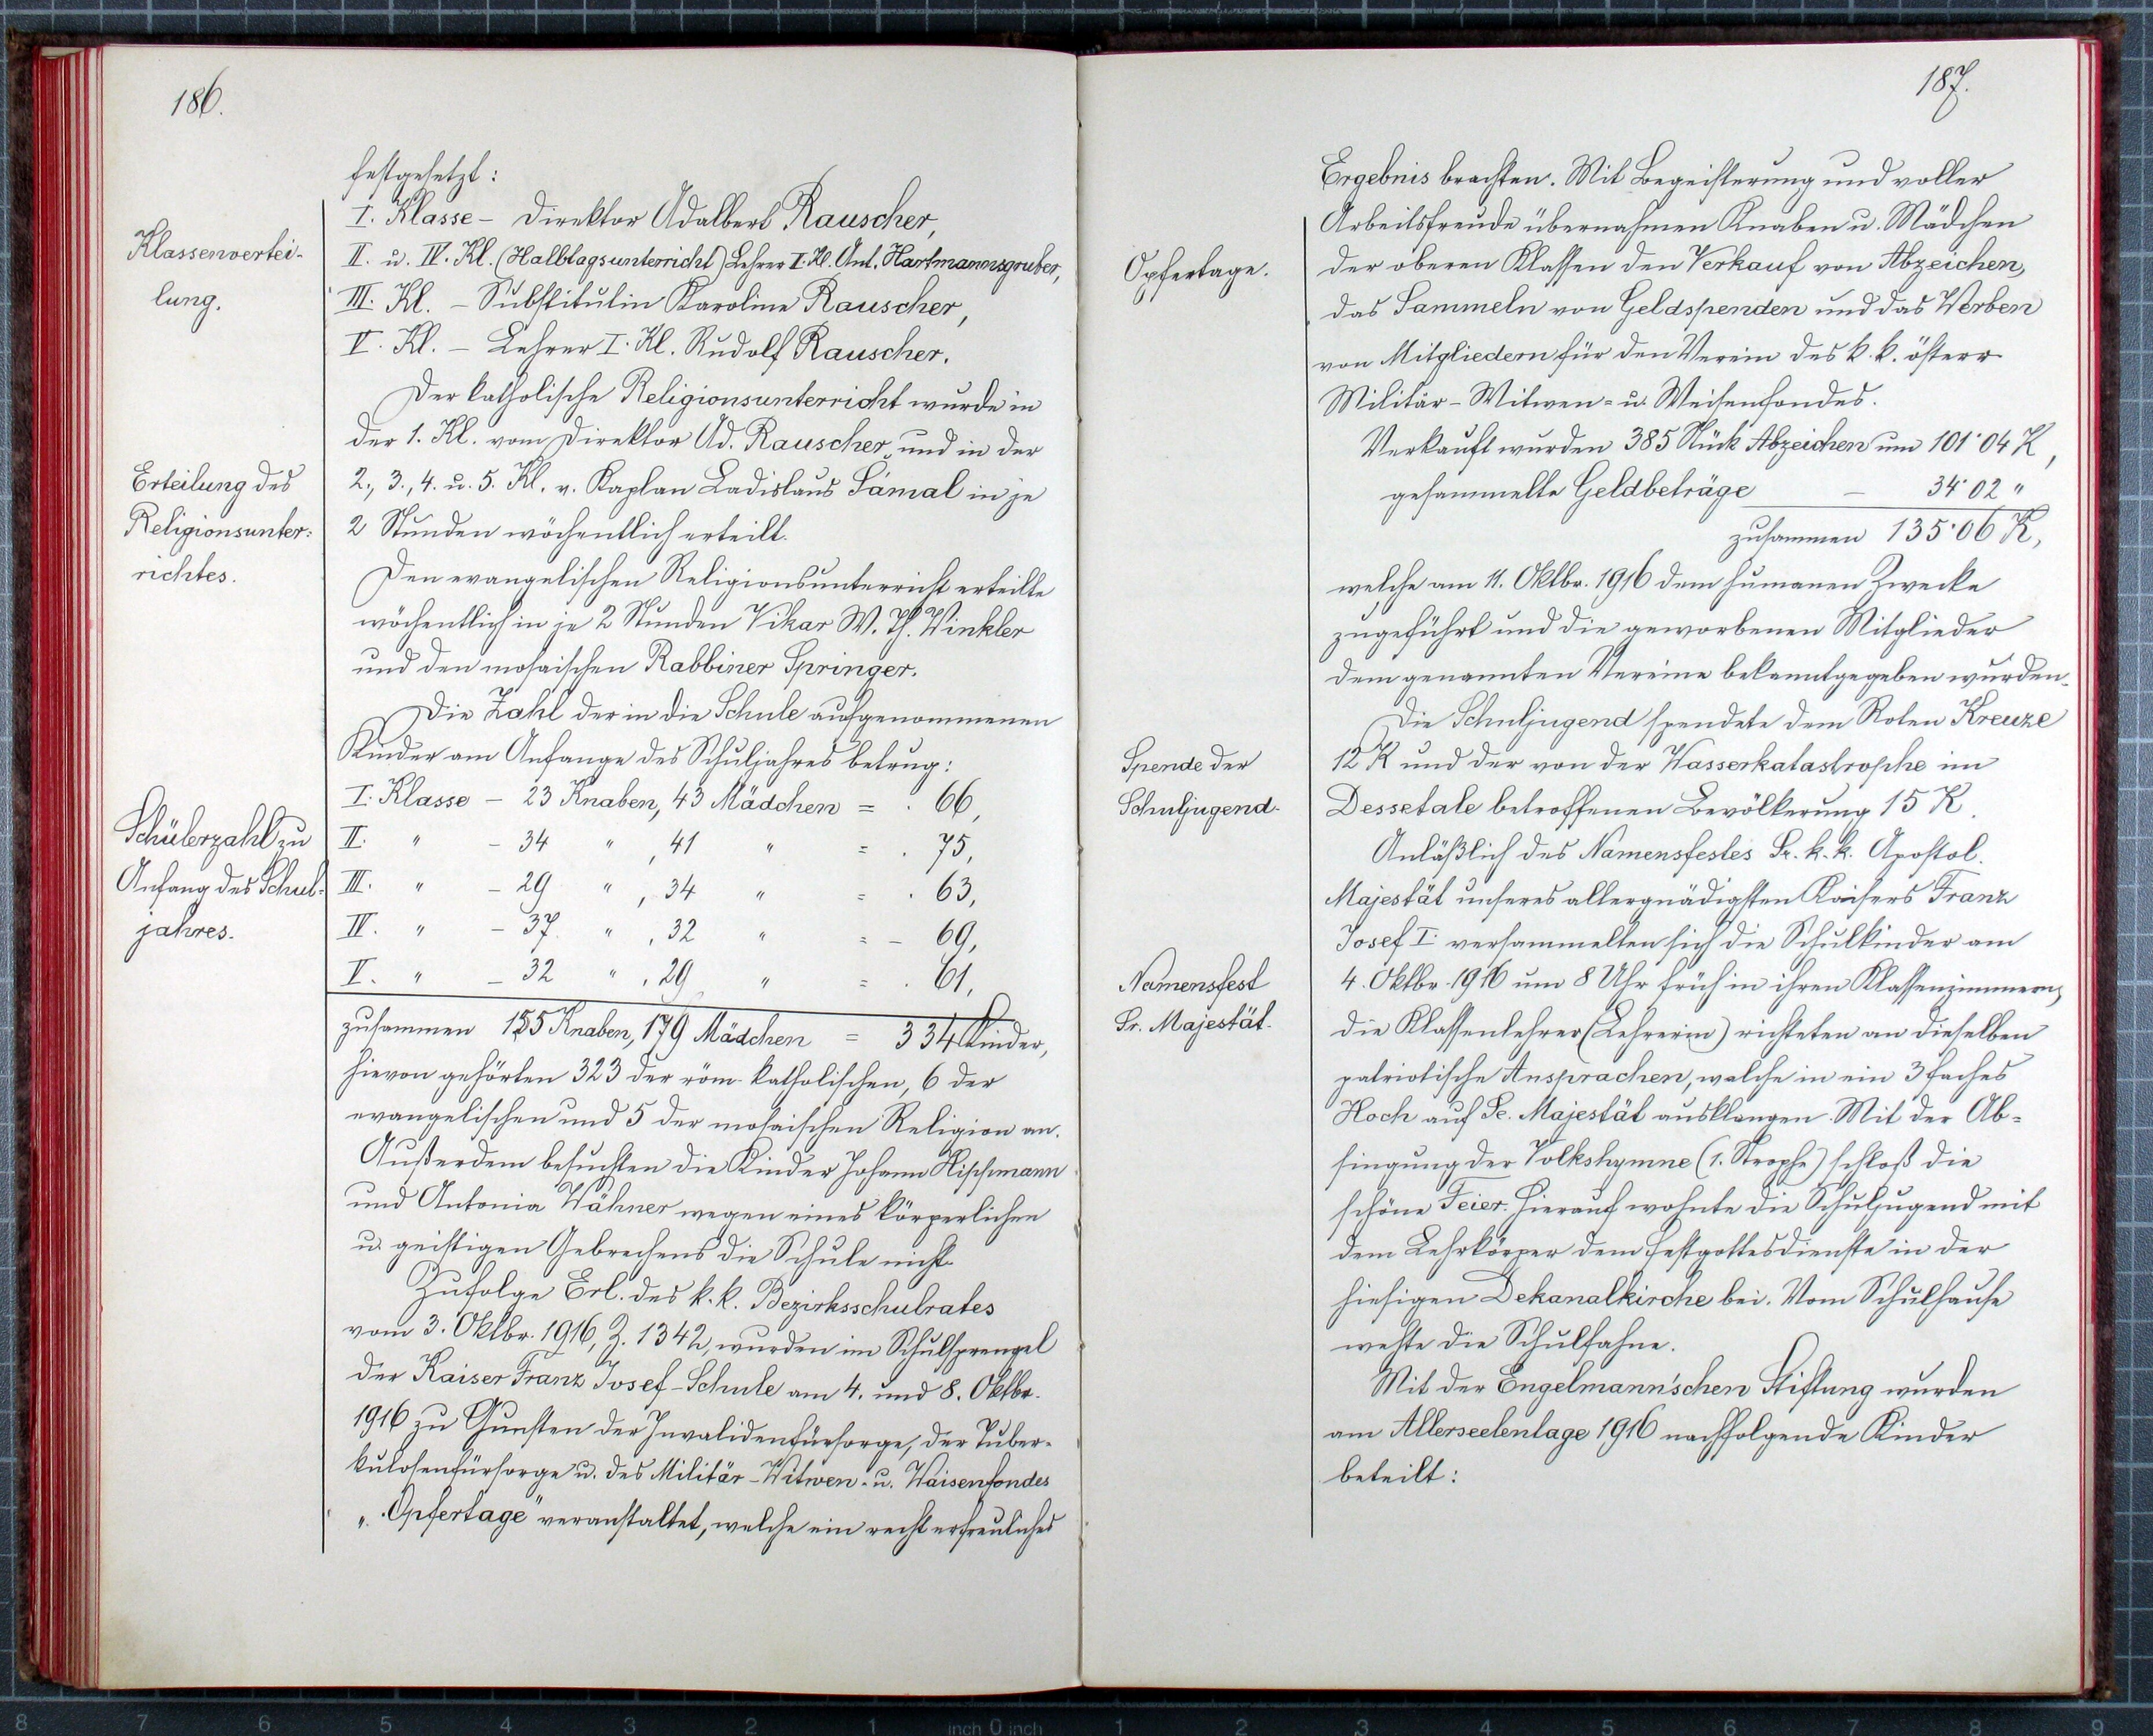 186.
festgesetzt:
Klassenvertei-
lung.
I. Klasse - Direktor Adalbert Rauscher,
II. u. IV. Kl. (Halbtagsunterricht) Lehrer I. Kl. Ant. Hartmannsgruber,
III. Kl. - Substitutin Karoline Rauscher,
V. Kl. - Lehrer I. Kl. Rudolf Rauscher.
Der katholische Religionsunterricht wurde in
der 1. Kl. vom Direktor Ad. Rauscher und in der
Erteilung des
Religionsunter-
richtes.
2., 3., 4. u. 5. Kl. v. Kaplan Ladislaus Sámal in je
2 Stunden wöchentlich erteilt.
Den evangelischen Religionsunterricht erteilte
wöchentlich in je 2 Stunden Vikar W. Th. Winkler
und den mosaischen Rabbiner Springer.
Die Zahl der in die Schule aufgenommenen
Kinder am Anfange des Schuljahres betrug:
Schülerzahl zu
Anfang des Schul-
jahres.
I. Klasse - 23 Knaben, 43 Mädchen = . 66,
II. " - 34 " , 41 " = . 75,
III. " - 29 " , 34 " = . 63,
IV. " - 37 " , 32 " = - 69,
V. " - 32 " , 29 " = . 61,
zusammen 155 Knaben, 179 Mädchen = 334 Kinder,
hievon gehörten 323 der röm. katholischen, 6 der
evangelischen und 5 der mosaischen Religion an.
Außerdem besuchten die Kinder Johann Hippmann
und Antonia Wähner wegen eines körperlichen
u. geistigen Gebrechens die Schule nicht.
Zufolge Erl. des k. k. Bezirksschulrates
vom 3. Oktbr. 1916, Z. 1342, wurden im Schulsprengel
der Kaiser Franz Josef-Schule am 4. und 8. Oktbr.
1916 zu Gunsten der Invalidenfürsorge, der Tuber-
kulosenfürsorge u. des Militär-Witwen- u. Waisenfondes
"Opfertage" veranstaltet, welche ein recht erfreuliches
187.
Ergebnis brachten. Mit Begeisterung und voller
Arbeitsfreude übernahmen Knaben u. Mädchen
Opfertage.
der oberen Klassen den Verkauf von Abzeichen,
das Sammeln von Geldspenden und das Werben
von Mitgliedern für den Verein des k. k. österr.
Militär-Witwen- u. Weisenfondes.
Verkauft wurden 385 Stück Abzeichen um 101·04 K,
gesammelte Geldbeträge - 34·02 "
zusammen 135·06 K,
welche am 11. Oktbr. 1916 dem humanen Zwecke
zugeführt und die geworbenen Mitglieder
dem genannten Vereine bekanntgegeben wurden.
Die Schuljugend spendete dem Roten Kreuze
Spende der
Schuljugend.
12 K und der von der Wasserkatastrophe im
Dessetale betroffenen Bevölkerung 15 K.
Anläßlich des Namensfestes Sr. k. k. Apostol.
Majestät unseres allergnädigsten Kaisers Franz
Josef I. versammelten sich die Schulkinder am
Namensfest
Sr. Majestät.
4. Oktbr. 1916 um 8 Uhr früh in ihren Klassenzimmern,
die Klassenlehrer (Lehrerin) richteten an dieselben
patriotische Ansprachen, welche in ein 3faches
Hoch auf Se. Majestät ausklangen. Mit der Ab-
singung der Volkshymne (1. Strophe) schloß die
schöne Feier. Hierauf wohnte die Schuljugend mit
dem Lehrkörper dem Festgottesdienste in der
hiesigen Dekanalkirche bei. Vom Schulhause
wehte die Schulfahne.
Mit der Engelmann'schen Stiftung wurden
am Allerseelentage 1916 nachfolgende Kinder
beteilt:
8 7 6 5 4 3 2 1 inch 0 inch 1 2 3 4 5 6 7 8 9